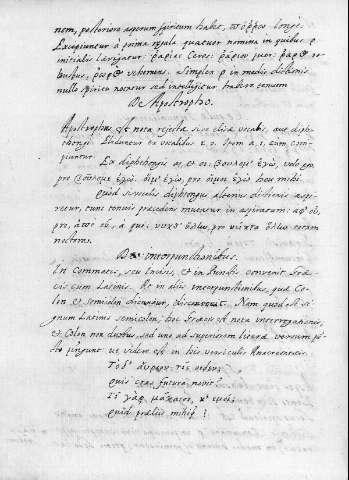 nem, posteriore asperum spiritum habet, πόῤῥω longè.
Excipiuntur à prima regula quatuor nomina in quibus ρ
initialis lævigatur:
bustus, vehemens. Simplex ρ in mediis dictionis
nullo spiritu notatur sed intelligitur habere tenuem
De Apostropho.
Apostrophus est nota rejectæ sive elisæ vocalis, aut diph-
thongi. Eliduntur ex vocalibus
Ex diphthongis αι, et οι: βούλομ' ἐγὼ, volo ego
pro βούλομαι ἐγὼ. οἴμ' ἐγὼ, pro οἴμοι ἐγὼ heu mihi.
Quod si vocalis diphtongus alterius dictionis aspe-
retur, tunc tenuis præcedens mutatur in aspiratam: ἀφ' οὗ,
pro, ἀπὸ οὗ, à quo: νύχθ' ὅλην, pro νύκτα ὅλην totam
noctem.
De interpunctionibus.
In Commatis, seu Incisis, et in Punctis convenit Græ-
cis cum Latinis. At in aliis interpunctionibus, quæ Co-
lon et semicolon dicuntur, Nam quod est si-
gnum Latinis semicolon, hoc Græcis est nota interrogationis,
et Colon non duobus, sed uno ad superiorem literæ versum pūc-
to pingunt ut videre est in his versiculis Anacreontis.
Τὸ δ' αὔριον τίς οἶδεν;
Quis cras futura novit?
Τί γὰρ μάχαιας, κ' ἐμοί;
Quid præliis mihique?